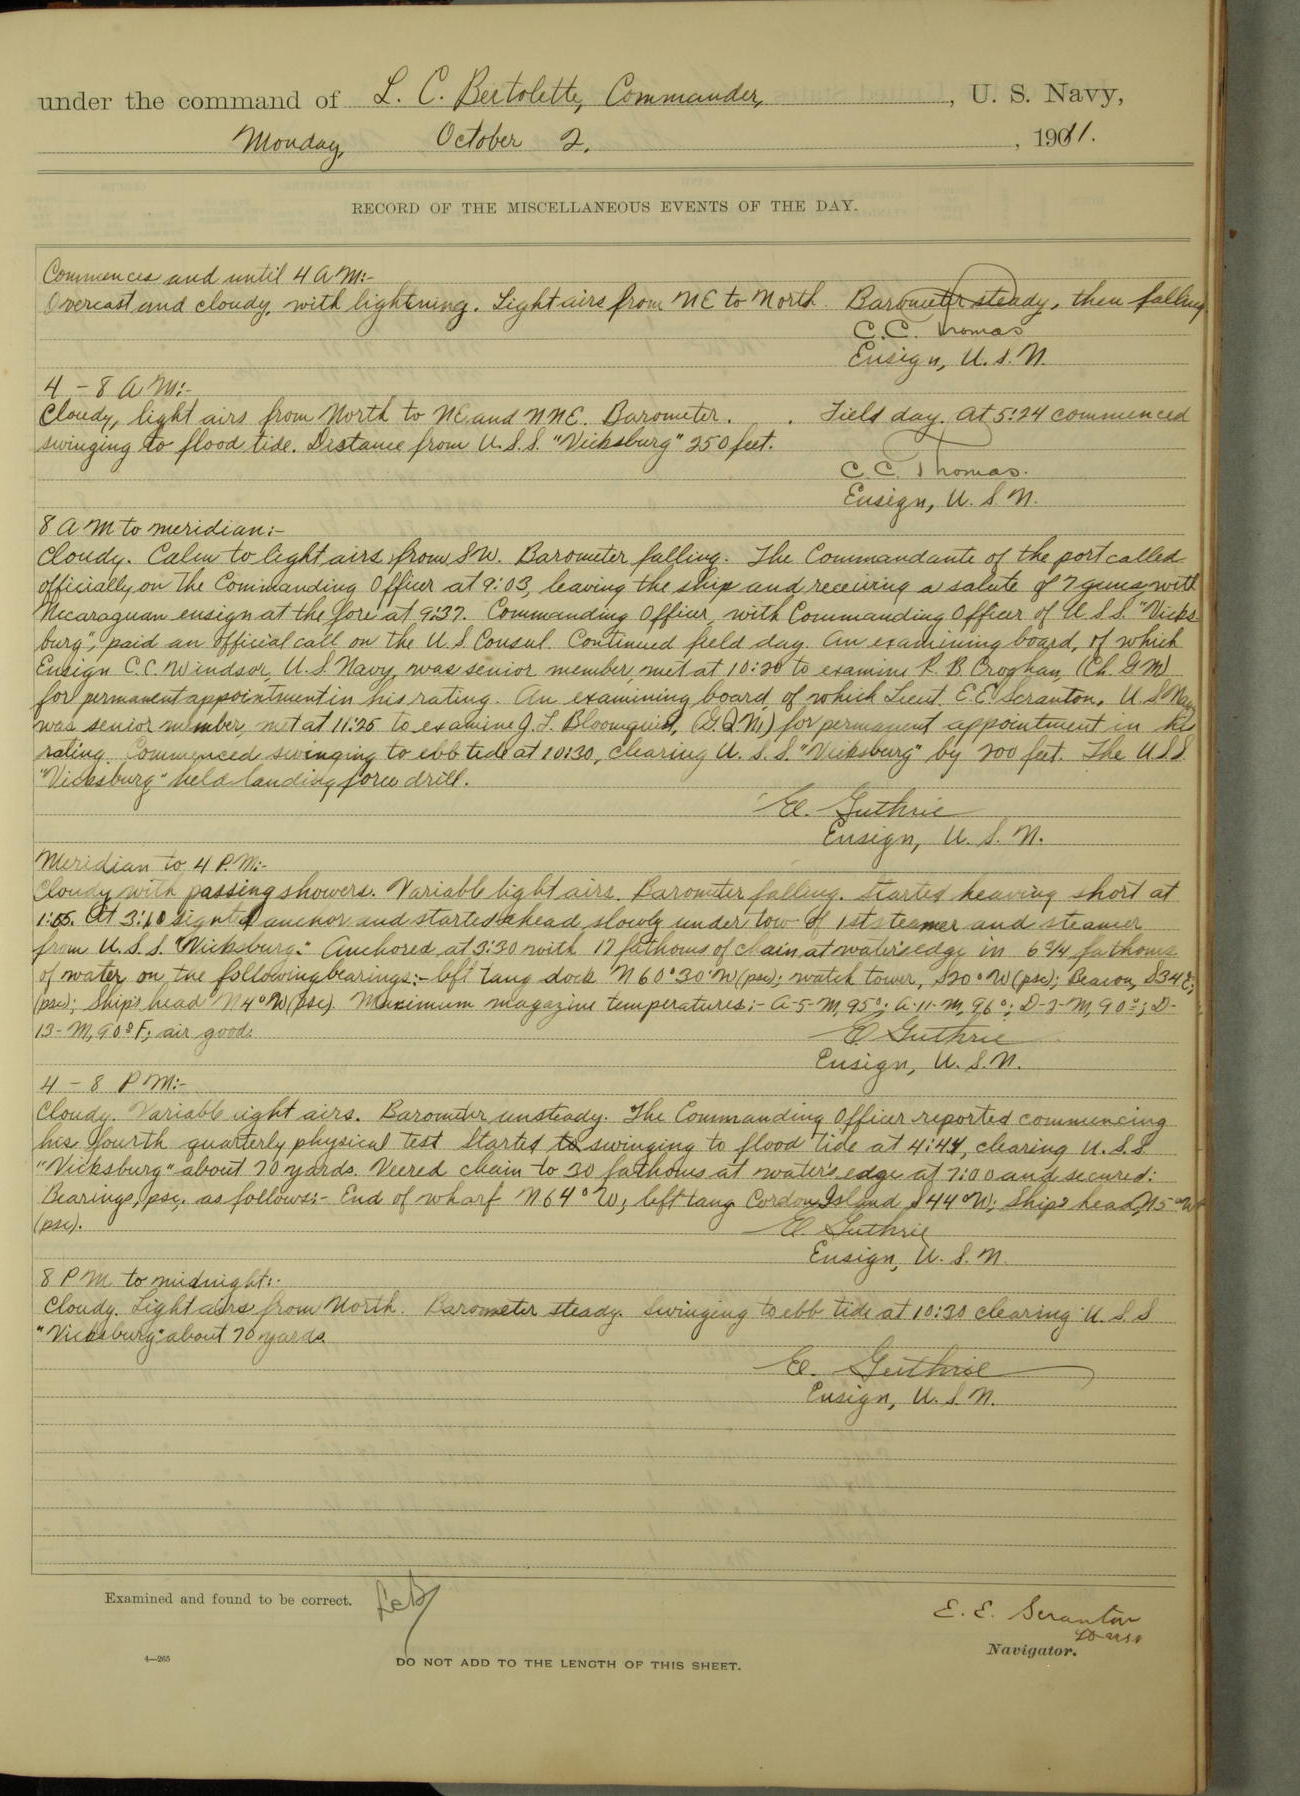 under the command of L. C. Bertolette, Commander, , U. S. Navy,
Monday, October 2. , 1911.
RECORD OF THE MISCELLANEOUS EVENTS OF THE DAY.
Commences and until 4 A M:-
Overcast and cloudy, with lightning. Light airs from NE to North. Barometer steady, then falling.
C. C. Thomas
Ensign, U. S. N.
4 - 8 A M:-
Cloudy, light airs from North to NE and NNE. Barometer . . Field day. At 5:24 commenced
swinging to flood tide. Distance from U. S. S. "Vicksburg" 250 feet.
C. C. Thomas.
Ensign, U. S N.
8 A M to meridian:-
Cloudy. Calm to light airs from SW. Barometer falling. The Commandante of the port called
officially on the Commanding Officer at 9:03, leaving the ship and receiving a salute of 7 guns with
Nicaraguan ensign at the fore at 9:37. Commanding Officer, with Commanding Officer of U S S. "Vicks
burg", paid an official call on the U. S. Consul. Continued field day. An examining board, of which
Ensign C. C. Windsor, U. S. Navy, was senior member, met at 10:20 to examine R. B. Croghan, (Ch. G M)
for permanent appointment in his rating. An examining board, of which Lieut. E. E. Scranton, U. S Navy
was senior member, met at 11:25 to examine J. L. Bloomquist, (G.Q.M) for permanent appointment in his
rating. Commenced swinging to ebb tide at 10:30, clearing U. S. S. "Vicksburg" by 200 feet. The U.S.S.
"Vicksburg" held landing force drill.
E. Guthrie
Ensign, U. S. N.
Meridian to 4 P. M:-
Cloudy with passing showers. Variable light airs. Barometer falling. Started heaving short at
1:05. At 3:10 sighted anchor and started ahead slowly under tow of 1st steamer and steamer
from U. S. S. "Vicksburg." Anchored at 3:30 with 17 fathoms of chain at water's edge in 6 3/4 fathoms
of water on the following bearings:- left tang dock N 60° 30' W (psc); watch tower, S 20° W (psc); Beacon, S34E;
(psc); Ship's head N 4° W (psc). Maximum magazine temperatures:- A-5-M, 95°; A-11-M, 96°; D-7-M, 90°; D-
13-M, 90° F; air good.
E Guthrie
Ensign, U. S. N.
4 - 8 P M:-
Cloudy. Variable light airs. Barometer unsteady. The Commanding Officer reported commencing
his fourth quarterly physical test. Started to swinging to flood tide at 4:44, clearing U. S. S
"Vicksburg" about 70 yards. Veered chain to 30 fathoms at water's edge at 7:00 and secured:
Bearings, psc, as follows:- End of wharf N 64° W; left tang Cordon Island S 44° W; Ship's head, N 5° W
(psc).
E. Guthrie
Ensign, U. S. N.
8 P M to midnight:-
Cloudy. Light airs from North. Barometer steady. Swinging to ebb tide at 10:30 clearing U. S S
"Vicksburg" about 70 yards.
E. Guthrie
Ensign, U. S. N.
Examined and found to be correct. LCB
E. E. Scranton
Navigator.
4—265
DO NOT ADD TO THE LENGTH OF THIS SHEET.